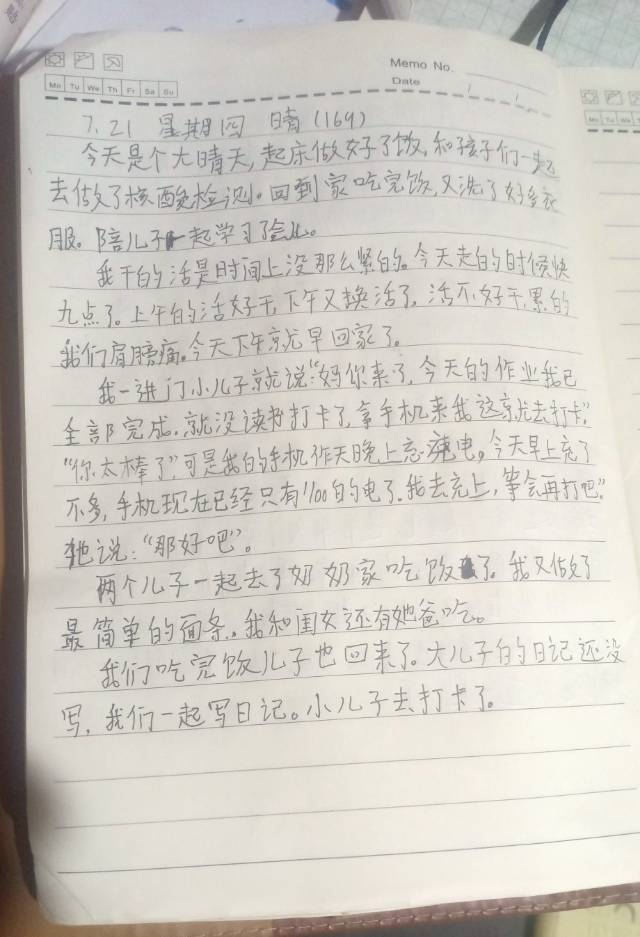 Memo No.
Date
Mo Tu We Th Fr Sa Su
7.21 星期四 晴(169)
今天是个大晴天,起床做好了饭,和孩子们一起
去做了核酸检测。回到家吃完饭,又洗了好多衣
服。陪儿子一起学习了会儿。
我干的活是时间上没那么紧的。今天走的时候快
九点了。上午的活好干,下午又换活了,活不好干,累的
我们肩膀痛。今天下午就早回家了。
我一进门小儿子就说:“妈你来了,今天的作业我已
全部完成。就没读书打卡了,拿手机来我这就去打卡”。
“你太棒了”,可是我的手机作天晚上忘充电。今天早上充了
不多,手机现在已经只有1/100的电了。我去充上,等会再打吧”。
他说:“那好吧”。
两个儿子一起去了奶奶家吃饭了。我又做了
最简单的面条。我和闺女还有她爸吃。
我们吃完饭儿子也回来了。大儿子的日记还没
写,我们一起写日记。小儿子去打卡了。